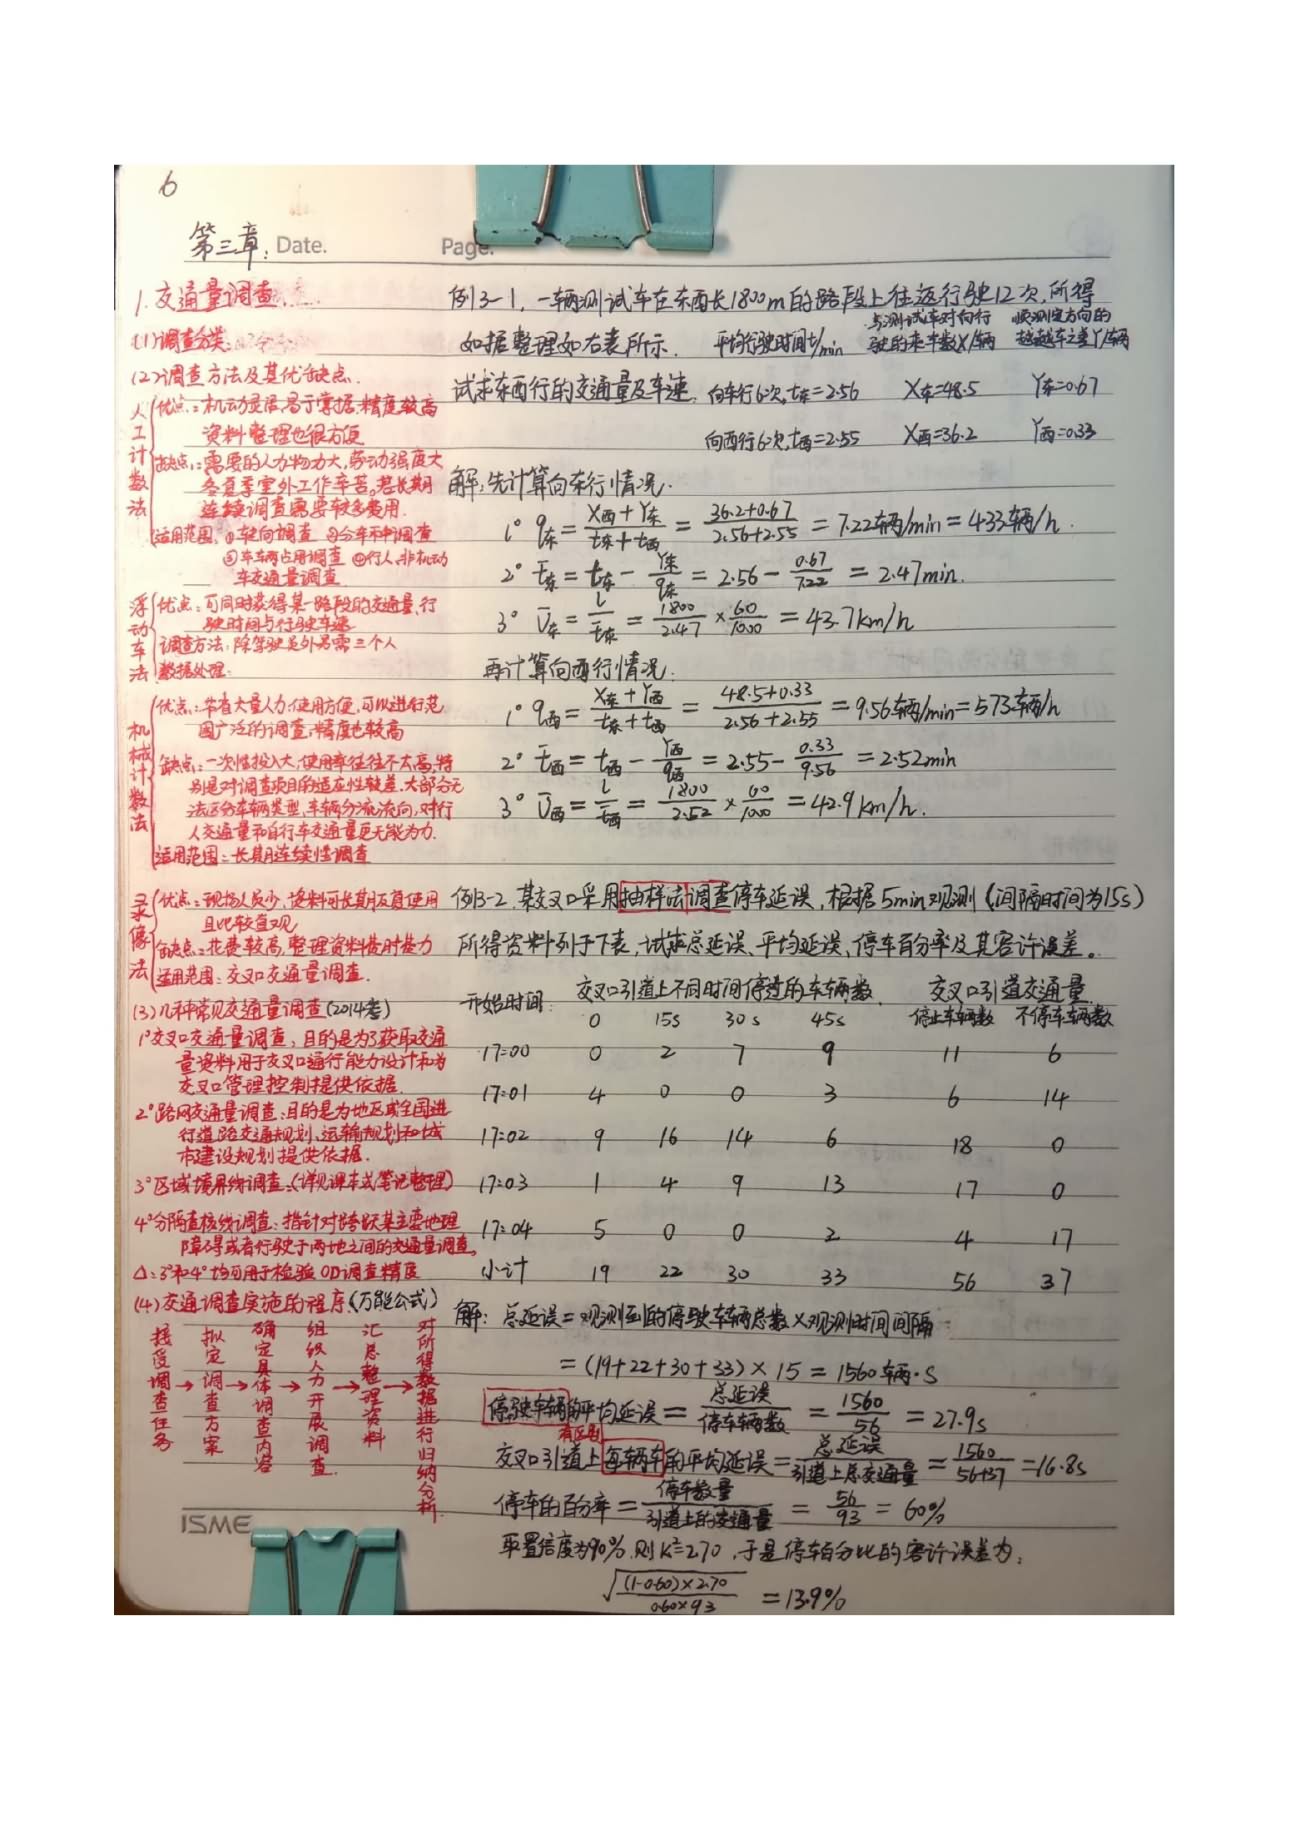 6
第三章: Date. Page.
1. 交通量调查
(1)调查分类:
(2)调查方法及其优缺点.
人工计数法
优点:机动灵活,易于掌握,精度较高
资料整理也很方便
缺点:需要的人力物力大,劳动强度大
冬夏季室外工作辛苦。若长期
连续调查需要较多费用.
适用范围:①转向调查 ②分车种调查
③车辆占用调查 ④行人、非机动
车交通量调查
浮动车法
优点:可同时获得某一路段的交通量、行
驶时间与行驶车速
调查方法:除驾驶员外另需三个人
数据处理.
机械计数法
优点:节省大量人力,使用方便,可以进行范
围广泛的调查,精度也较高
缺点:一次性投入大,使用率往往不太高,特
别是对调查项目的适应性较差,大部分无
法区分车辆类型、车辆分流流向,对行
人交通量和自行车交通量更无能为力.
适用范围:长期连续性调查
录像法
优点:现场人员少,资料可长期反复使用
且比较直观
缺点:花费较高,整理资料费时费力
适用范围:交叉口交通量调查.
(3)几种常见交通量调查(2014考)
1°交叉口交通量调查:目的是为了获取交通
量资料用于交叉口通行能力设计和为
交叉口管理控制提供依据.
2°路网交通量调查:目的是为地区或全国进
行道路交通规划、运输规划和城
市建设规划提供依据.
3°区域境界线调查:(详见课本或笔记整理)
4°分隔查核线调查:指针对跨跃某主要地理
障碍或者行驶于两地之间的交通量调查。
Δ:3°和4°均可用于检验OD调查精度
(4)交通调查实施的程序(万能公式)
接受调查任务→拟定调查方案→确定具体调查内容→组织人力开展调查.→汇总整理资料→对所得数据进行归纳分析.
ISME
例3-1,一辆测试车在东西长1800m的路段上往返行驶12次,所得
如据整理如右表所示. 平均行驶时间t/min 与测试车对向行驶的来车数X/辆 顺测定方向的超越车之差Y/辆
试求东西行的交通量及车速. 向东行6次,t东=2.56 X东=48.5 Y东=0.67
向西行6次,t西=2.55 X西=36.2 Y西=0.33
解:先计算向东行情况.
1° q东=(X西+Y东)/(t东+t西)=(36.2+0.67)/(2.56+2.55)=7.22辆/min=433辆/h.
2° t̄东=t东-Y东/q东=2.56-0.67/7.22=2.47min.
3° Ū东=l/t̄东=1800/2.47×60/1000=43.7km/h
再计算向西行情况:
1° q西=(X东+Y西)/(t东+t西)=(48.5+0.33)/(2.56+2.55)=9.56辆/min=573辆/h
2° t̄西=t西-Y西/q西=2.55-0.33/9.56=2.52min
3° Ū西=l/t̄西=1800/2.52×60/1000=42.9km/h.
例3-2.某交叉口采用抽样法调查停车延误,根据5min观测(间隔时间为15s)
所得资料列于下表,试求总延误、平均延误、停车百分率及其容许误差。
开始时间: 交叉口引道上不同时间停逄的车辆数 交叉口引道交通量
0 15s 30s 45s 停止车辆数 不停车辆数
17:00 0 2 7 9 11 6
17:01 4 0 0 3 6 14
17:02 9 16 14 6 18 0
17:03 1 4 9 13 17 0
17:04 5 0 0 2 4 17
小计 19 22 30 33 56 37
解:总延误=观测到的停驶车辆总数×观测时间间隔
=(19+22+30+33)×15=1560辆·s
停驶车辆的平均延误=总延误/停车辆数=1560/56=27.9s
有区别
交叉口引道上每辆车的平均延误=总延误/引道上总交通量=1560/(56+37)=16.8s
停车的百分率=停车数量/引道上的交通量=56/93=60%
取置信度为90%.则K²=2.70,于是停车百分比的容许误差为:
√((1-0.60)×2.70/(0.60×93))=13.9%